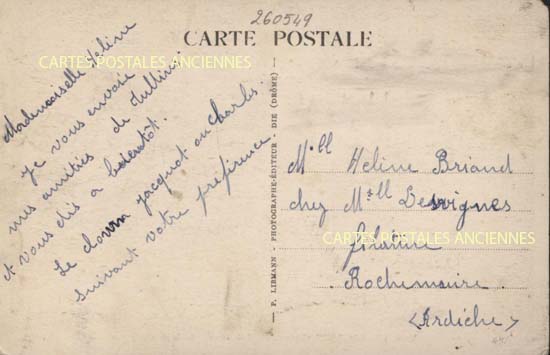 260549
CARTE POSTALE
CARTES POSTALES ANCIENNES
Mademoiselle Heline
Je vous envoie
mes amities de Tullins.
et vous dis a bientôt.
Le clown jacquot ou Charles.
suivant votre préférence
P. LIBMANN - PHOTOGRAPHE-ÉDITEUR - DIE (DRÔME)
Mell Heline Briand
chez Mell Desvignes
CARTES POSTALES ANCIENNES
filature
Rochemaure
<Ardèche>